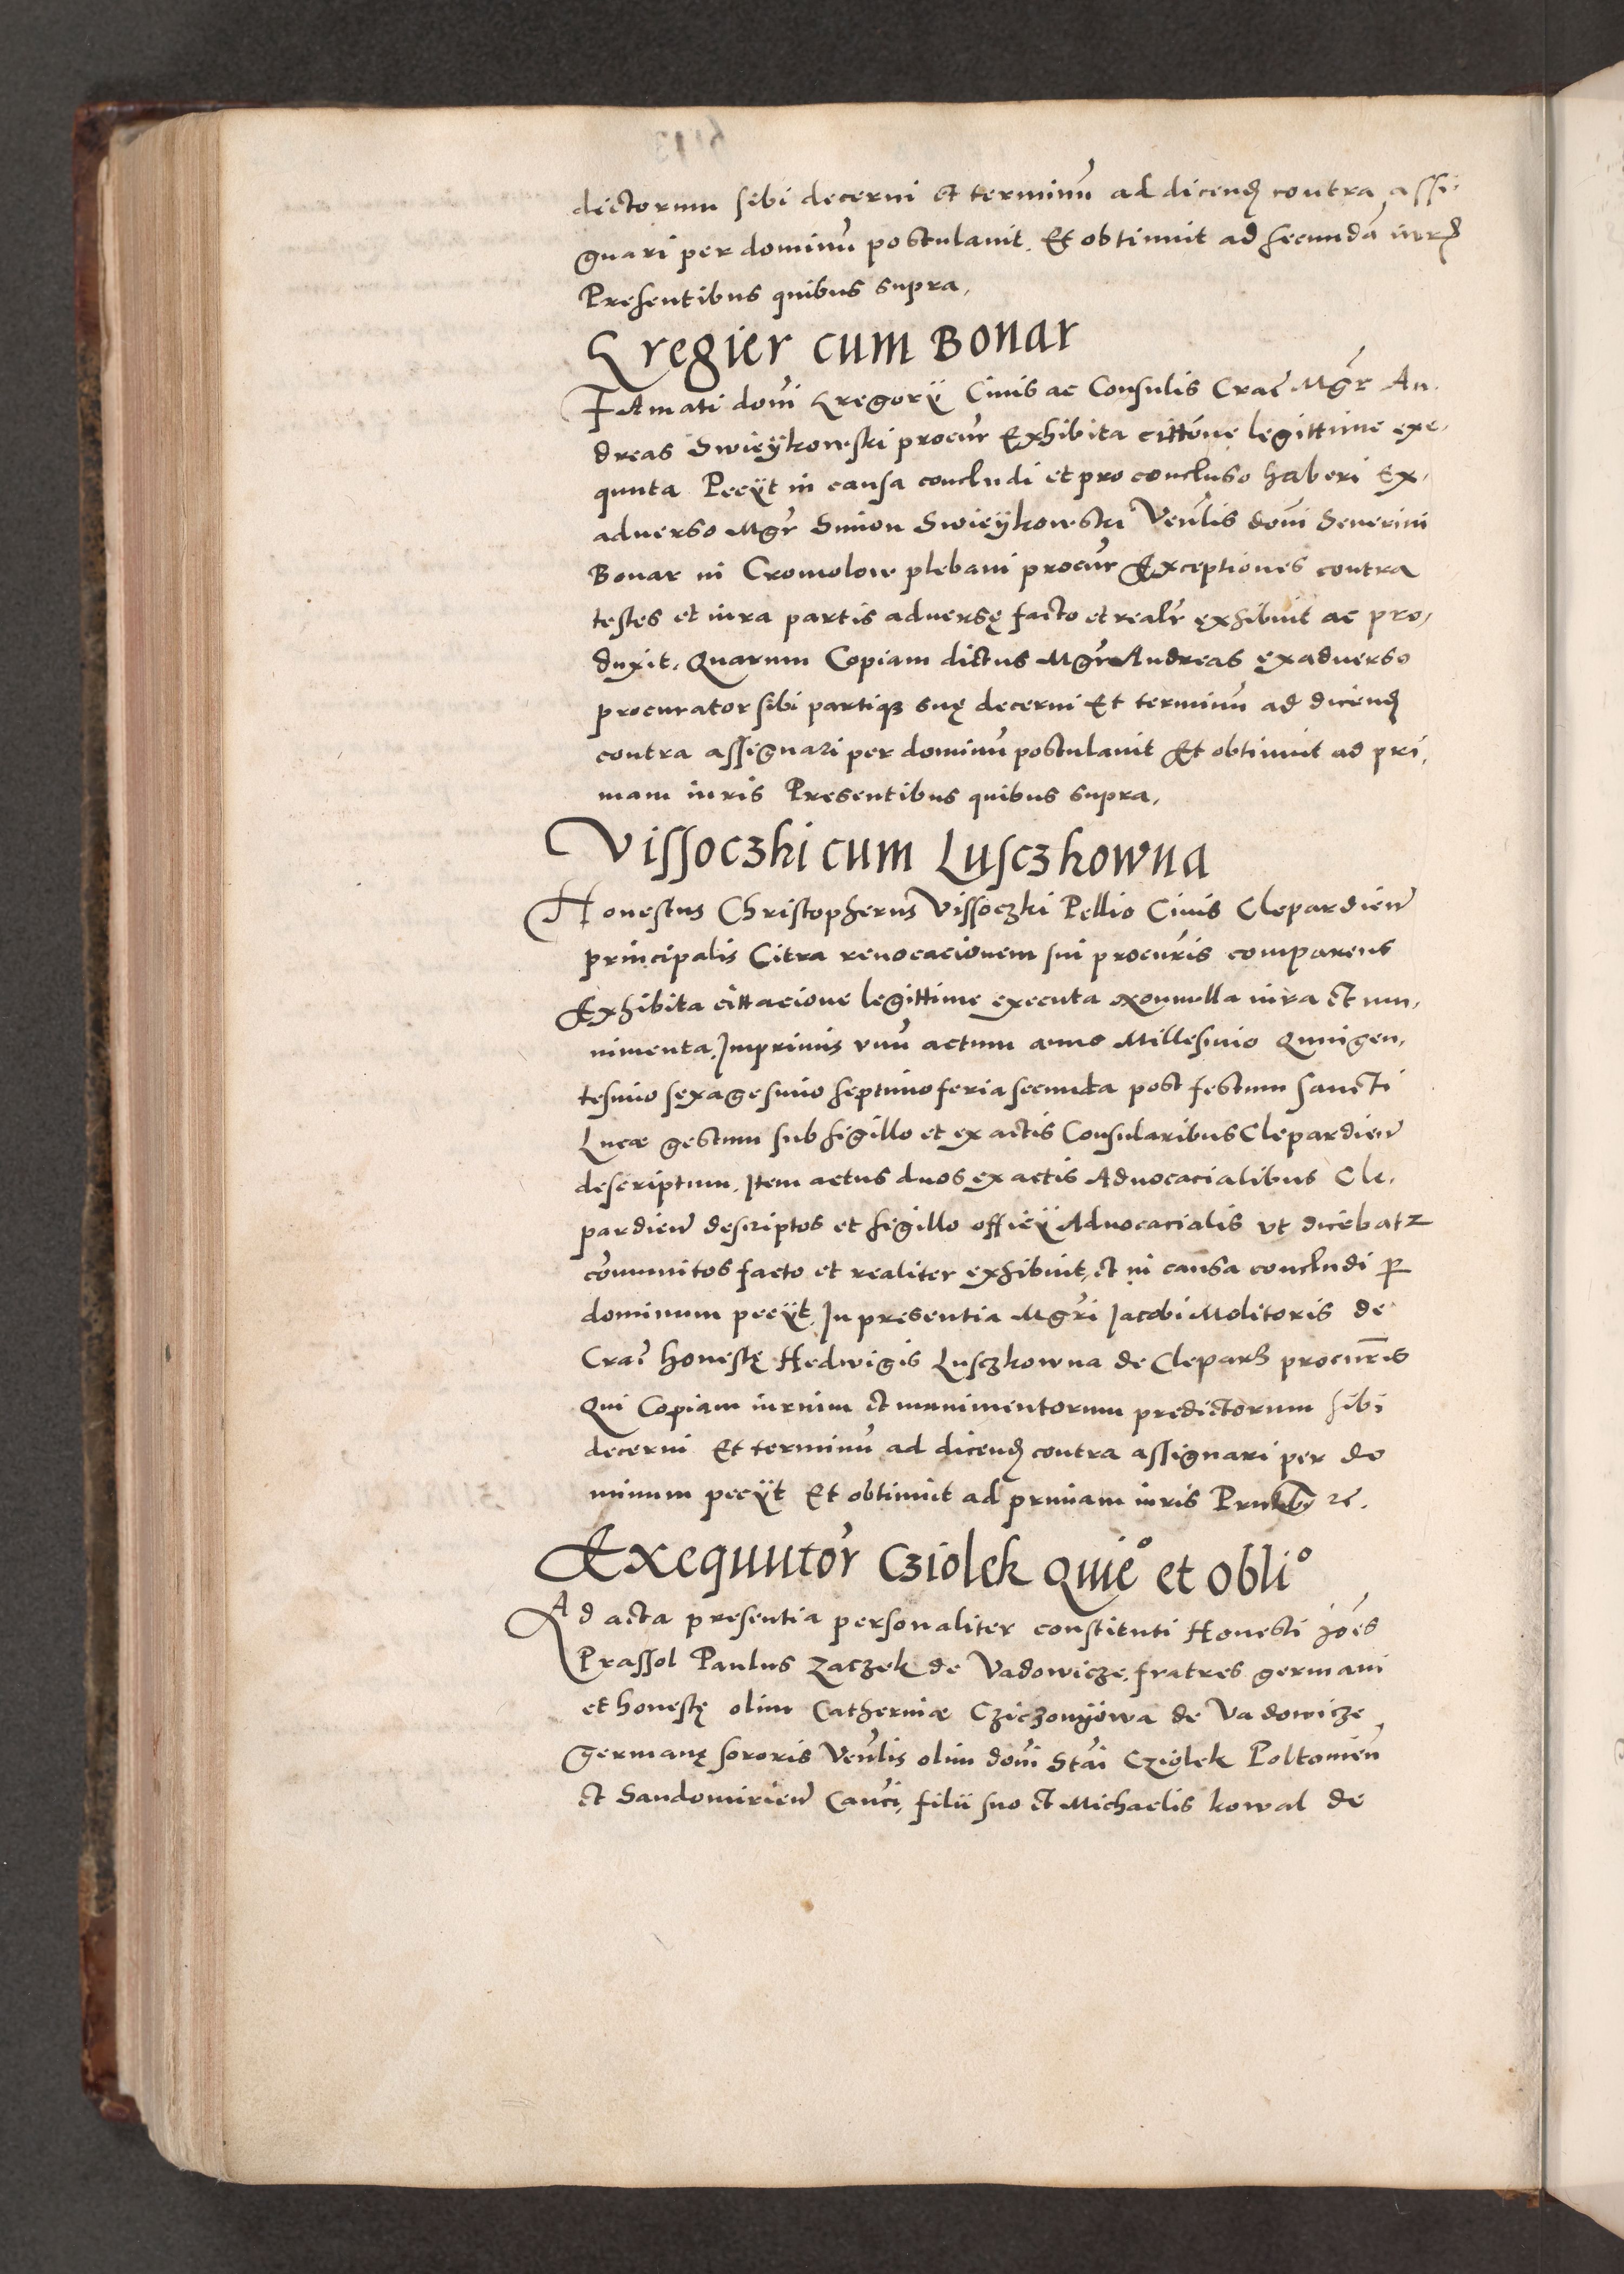 dictorum sibi decerni et terminū ad dicend contra assi-
gnari per dominū postulauit. Et obtinuit ad secundā iur
Presentibus quibus supra.
Gregier cum Bonar
Famati dom̄i Gregorÿ Ciuis ac Consulis Crac̄ Mgr̄ An-
dreas Swieÿkowski procur̄ Exhibita citt̄one legittime exe-
quuta Pecÿt in causa concludi et pro concluso haberi Ex-
aduerso Mgr̄ Simon Swieÿkowski Ven̄lis dom̄i Seuerini
Bonar in Cromolow plebani procur̄ Exceptiones contra
testes et iura partis aduersę facto et realr̄ exhibuit ac pro-
duxit. Quarum Copiam dictus Mgr̄ Andreas exaduerso
procurator sibi partiqꝫ suę decerni Et terminū ad dicend
contra assignari per dominū postulauit Et obtinuit ad pri-
mam iuris Presentibus quibus supra.
Vissoczki cum Lusczkowna
Honestus Christopherus Vissoczki Pellio Ciuis Clepardien̄
principalis Citra reuocacionem sui procur̄is comparens
Exhibita cittacione legittime executa nonnulla iura et mu-
nimenta. Imprimis vnū actum anno Millesimo Quingen-
tesimo sexagesimo septimo feria secunda post festum sancti
Lucæ gestum sub sigillo et ex actis Consularibus Clepardien̄
descriptum. Item actus duos ex actis Aduocacialibus Cle-
pardien̄ descriptos et sigillo officÿ Aduocacialis vt dicebatz
com̄unitos facto et realiter exhibuit, et in causa concludi ꝑ
dominum pecÿt. In presentia Mgr̄i Jacobi Molitoris de
Crac̄ honestę Hedwigis Lusczkowna de Clepar procur̄is
Qui Copiam iurium et munimentorum predictorum sibi
decerni Et terminū ad dicend contra assignari per do
minum pecÿt Et obtinuit ad primam iuris
Exequutor̄ Cziolek Quieº et obliº
Ad acta presentia personaliter constituti Honesti Joēs
Prassol Paulus Zaczek de Vadowicze. fratres germani
et honestę olim Catherinæ Cziczonÿowa de Vadowicze
germanę sororis Ven̄lis olim dom̄i Stāi Cziolek Poltouien̄
et Sandomirien̄ Can̄ci, filii suo et Michaelis kowal de